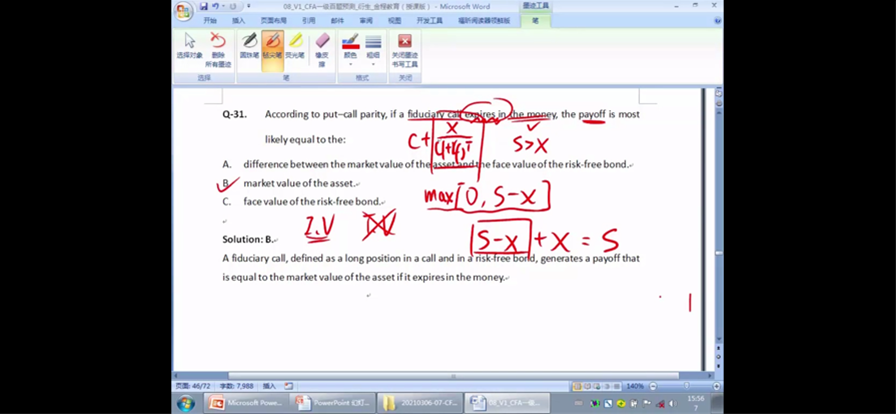 08_V1_CFA一级百题预测_衍生_金程教育（授课版） - Microsoft Word
墨迹工具
开始 插入 页面布局 引用 邮件 审阅 视图 开发工具 福昕阅读器领鲜版 笔
选择对象 删除所有墨迹 圆珠笔 毡尖笔 荧光笔 橡皮擦 颜色 粗细 关闭墨迹书写工具
选择 笔 格式 关闭
Q-31. According to put–call parity, if a fiduciary call expires in the money, the payoff is most
likely equal to the:
C+ X
S>X
A. difference between the market value of the asset and the face value of the risk-free bond.
B. market value of the asset.
max[0, S-X]
C. face value of the risk-free bond.
I.V
S-X + X = S
Solution: B.
A fiduciary call, defined as a long position in a call and in a risk-free bond, generates a payoff that
is equal to the market value of the asset if it expires in the money.
页面: 46/72 字数: 7,988 插入 140%
Microsoft Pow... PowerPoint 幻灯... 20210306-07-CF... 08_V1_CFA一级... 15:56